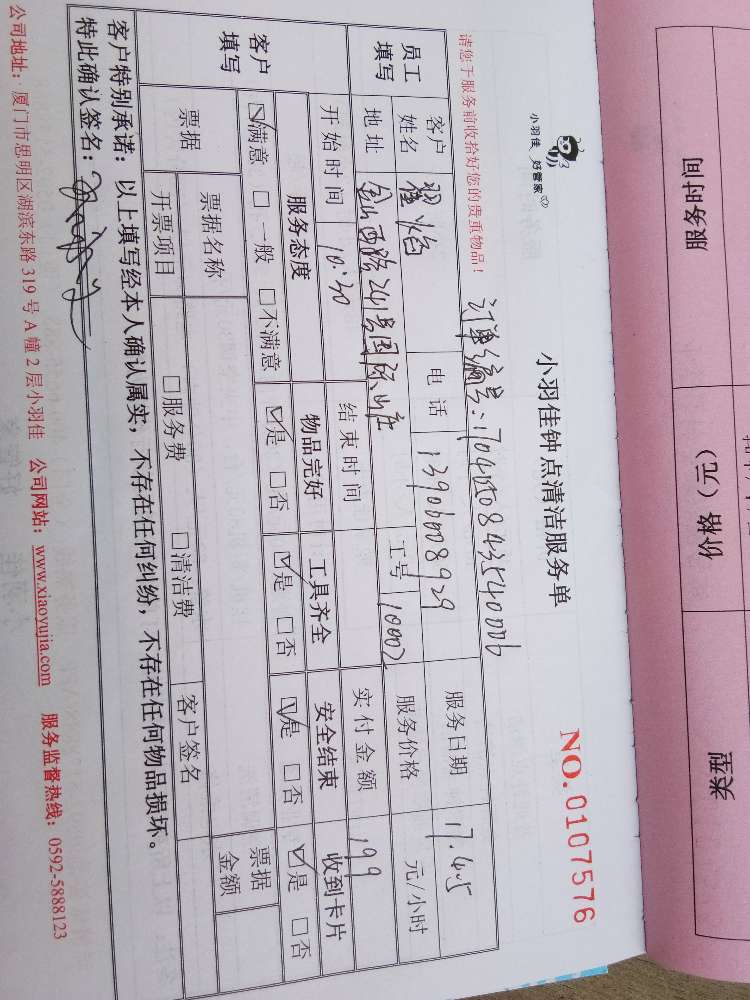 小羽佳 好管家
小羽佳钟点清洁服务单
NO.0107576
请您于服务前收拾好您的贵重物品！
订单编号：
员工填写
客户姓名
翟焰
电话
13906008929
服务日期
17.4.5
地址
金山西路241号国际山庄
工号
10002
服务价格
元/小时
开始时间
10:30
结束时间
实付金额
199
客户填写
服务态度
物品完好
工具齐全
安全结束
收到卡片
☑满意 □一般 □不满意
☑是 □否
☑是 □否
☑是 □否
☑是 □否
票据
票据名称
票据金额
开票项目
□服务费 □清洁费
客户签名
客户特别承诺：以上填写经本人确认属实，不存在任何纠纷，不存在任何物品损坏。
特此确认签名：
公司地址：厦门市思明区湖滨东路 319 号 A 幢 2 层小羽佳 公司网站：www.xiaoyujia.com 服务监督热线：0592-5888123
服务时间
价格（元）
类型